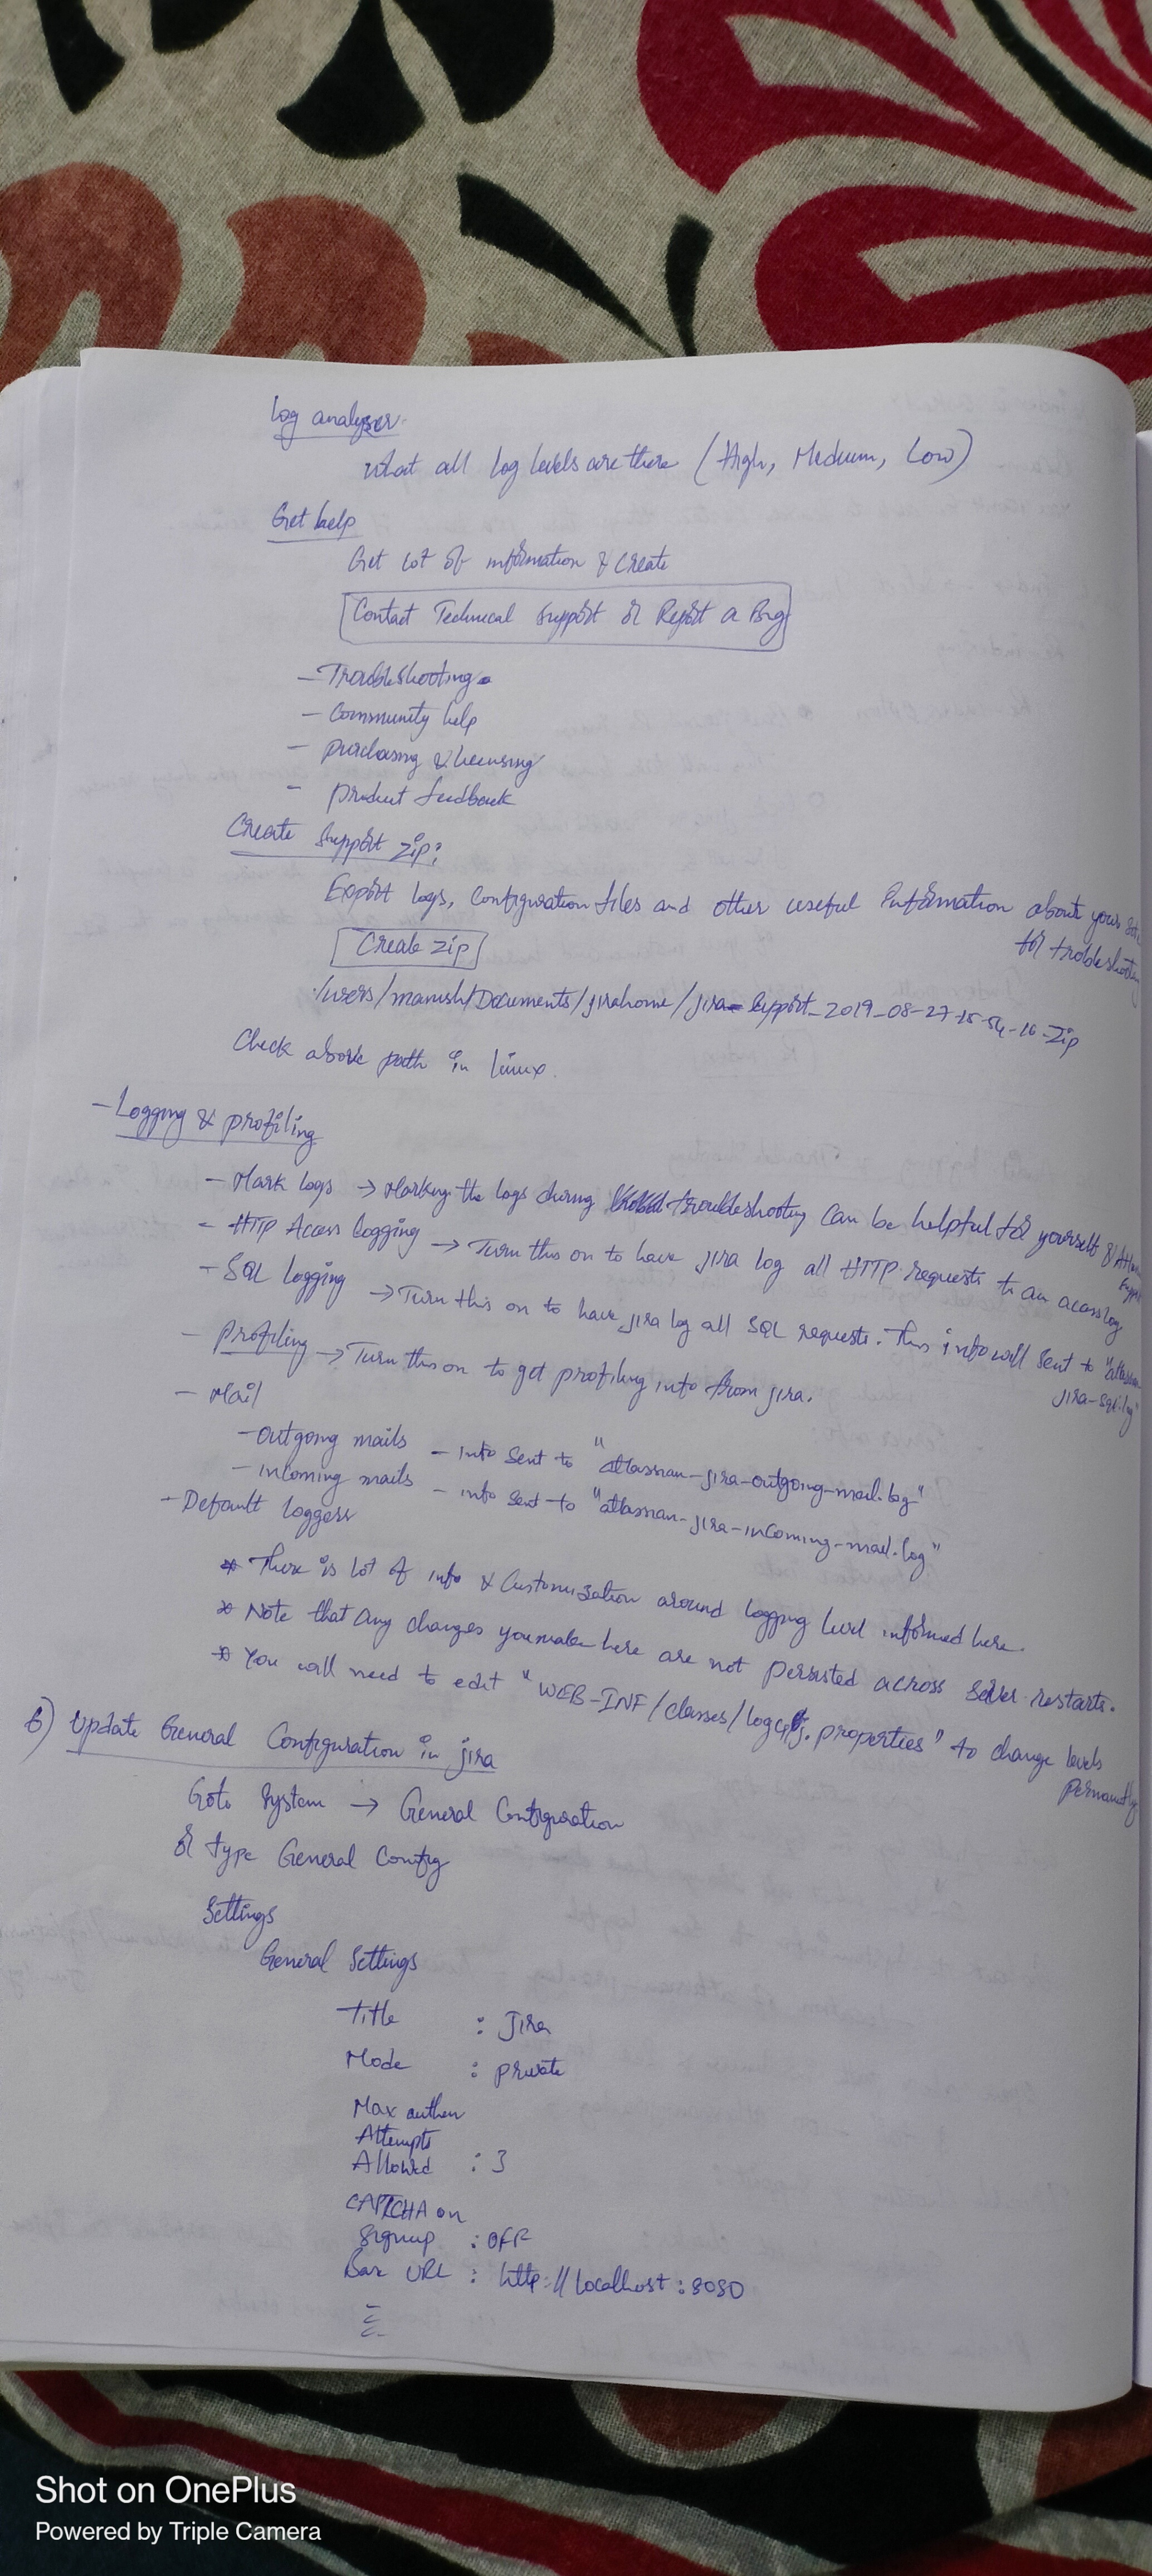 Log analyzer
What all log levels are there (High, Medium, Low)
Get help
Get lot of information & create
Contact Technical support or Report a Bug
- Troubleshooting
- Community help
- purchasing & licensing
- product feedback
Create support zip:
Export logs, configuration files and other useful information about your
for trobleshooting
Create zip
/users/manish/Documents/jirahome/jira-support_2019_08-27-15-54-16.zip
Check above path in linux.
- Logging & profiling
- Mark logs → Marking the logs during troubleshooting can be helpful for yourself &
- HTTP Access logging → Turn this on to have jira log all HTTP requests to an access log
- SQL logging → Turn this on to have jira log all SQL requests. This info will sent to "atlassian-
jira-sql.log"
- Profiling → Turn this on to get profiling info from jira.
- Mail
- outgoing mails - info sent to "atlassian-jira-outgoing-mail.log"
- incoming mails - info sent to "atlassian-jira-incoming-mail.log"
- Default loggers
* There is lot of info & customization around logging level informed here.
* Note that any changes you make here are not persisted across server restarts.
* You will need to edit "WEB-INF/classes/log4j.properties" to change levels
permanently
6) Update General Configuration in jira
Goto System → General Configuration
or type General Config
Settings
General Settings
Title : Jira
Mode : private
Max authen
Attempts
Allowed : 3
CAPTCHA on
signup : OFF
Base URL : http://localhost:8080
Shot on OnePlus
Powered by Triple Camera